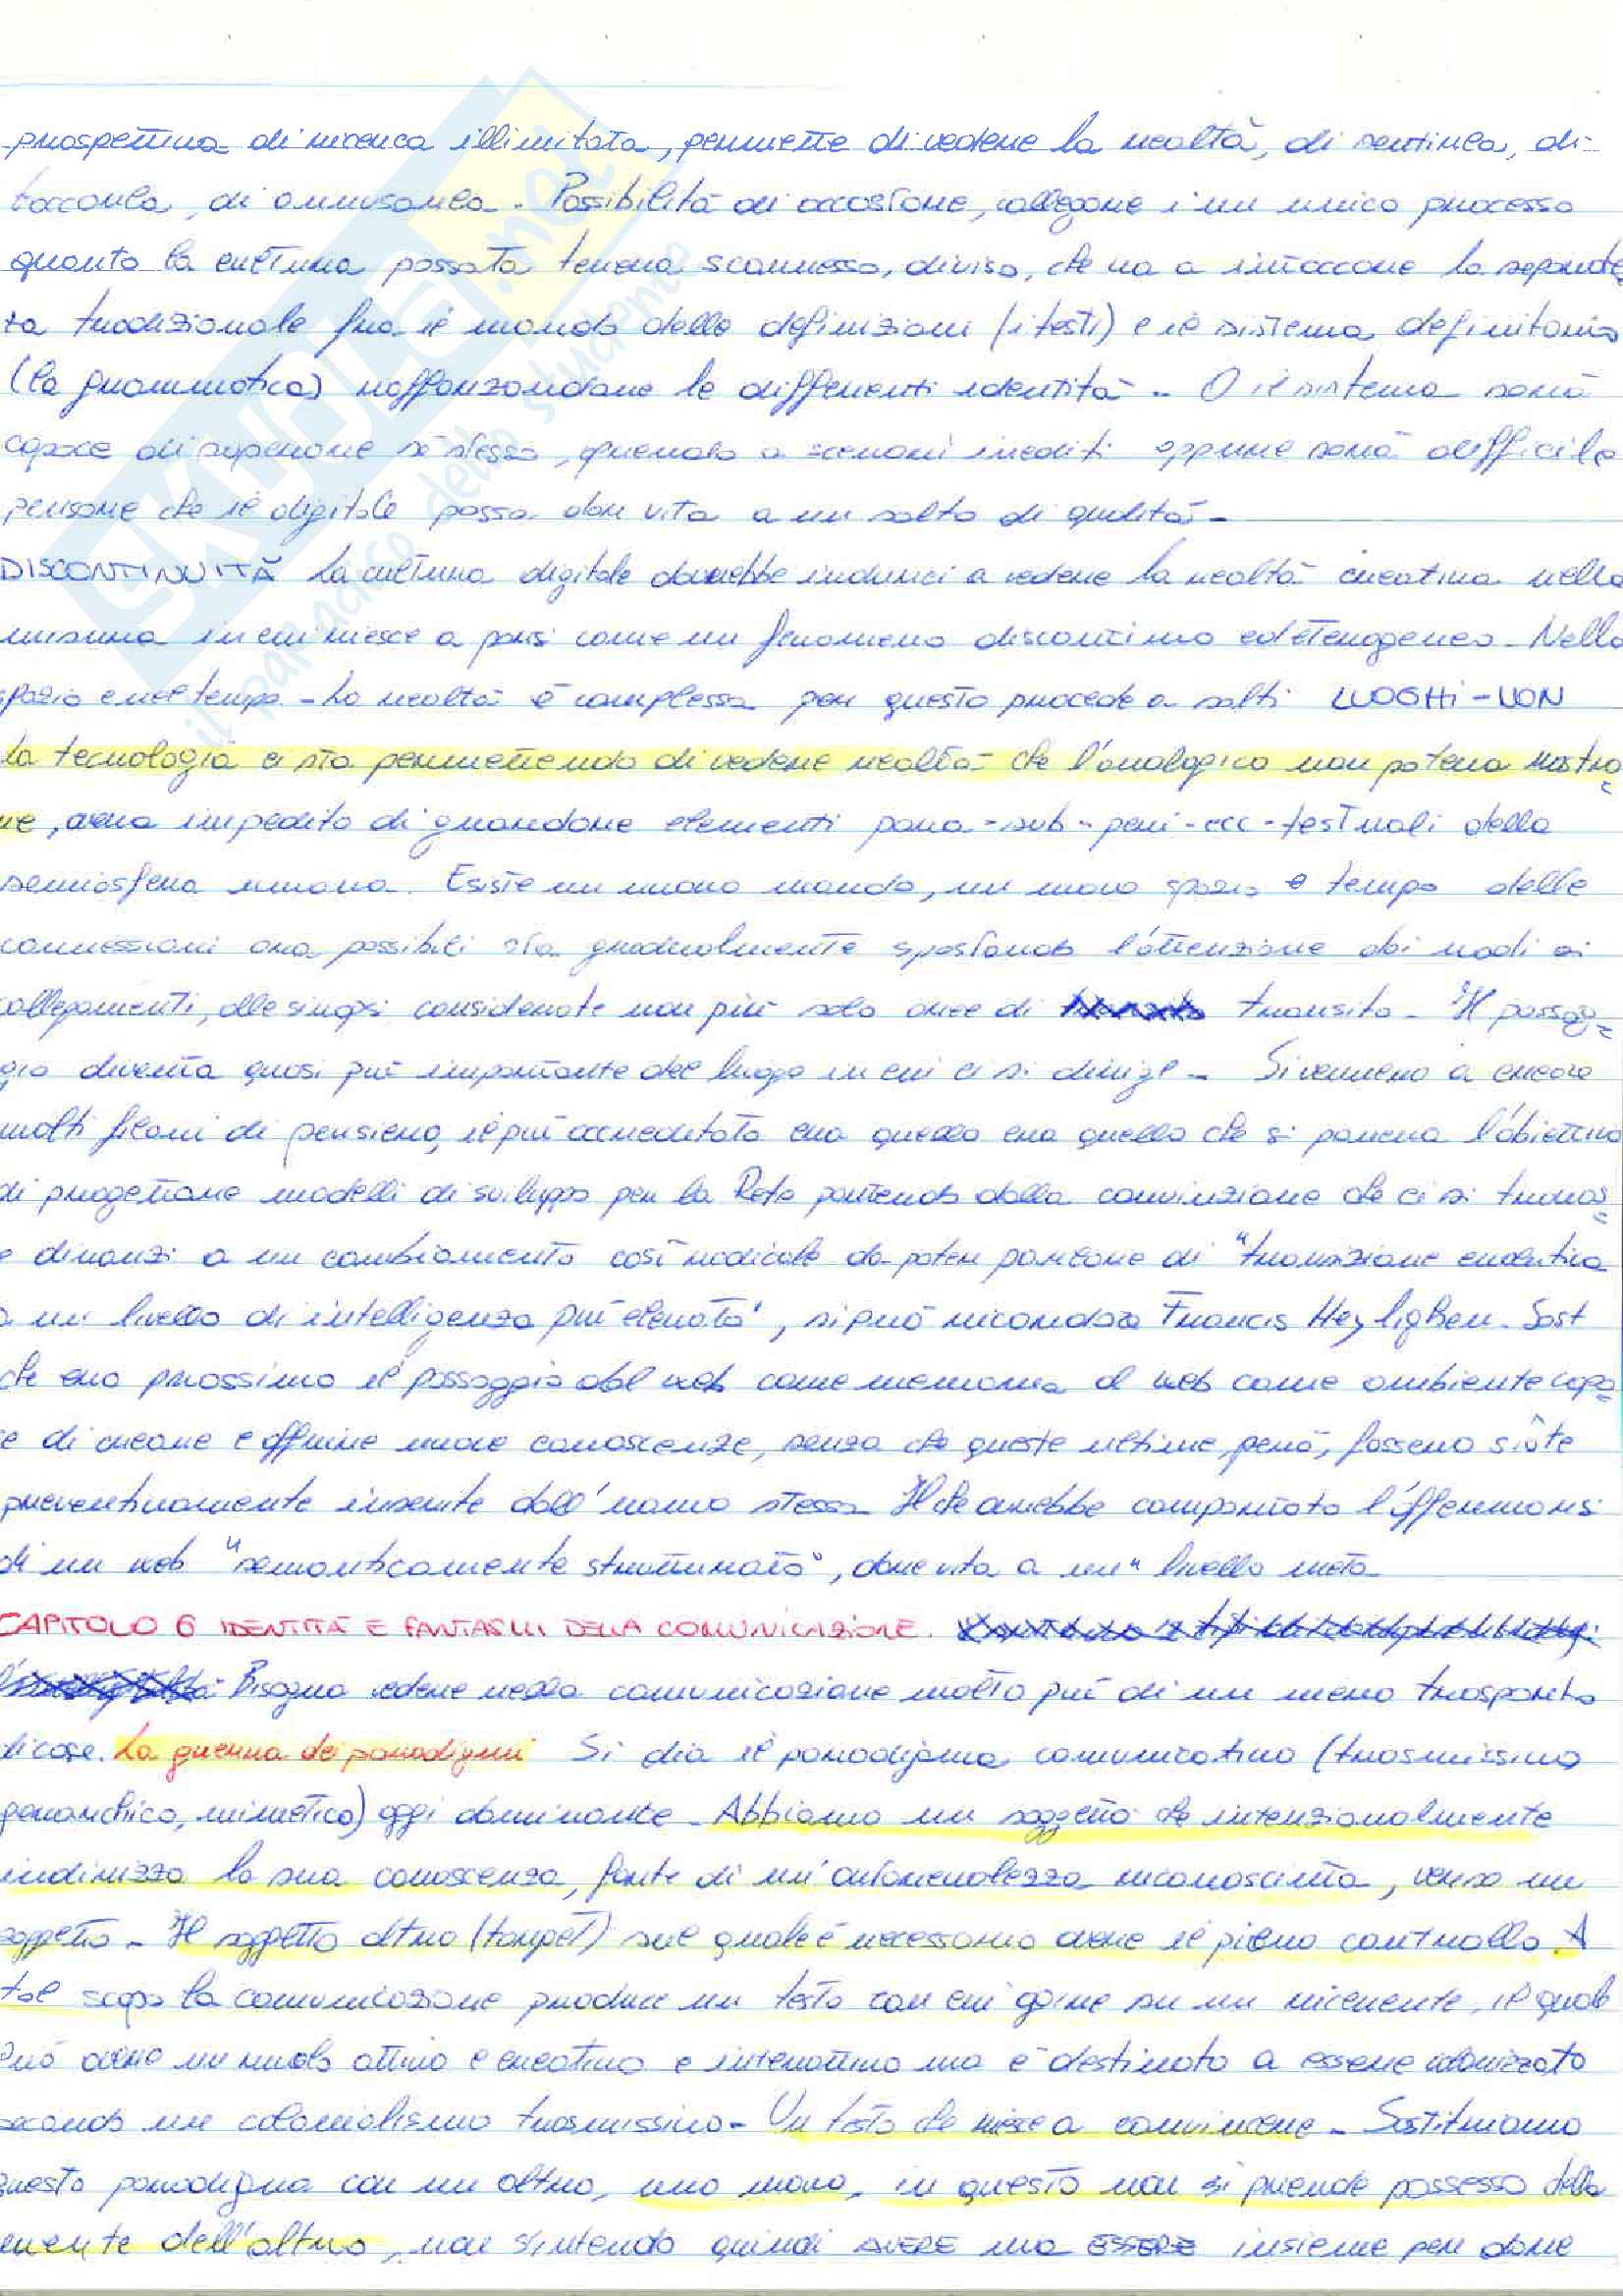 prospettiva di ricerca illimitata, permette di vedere la realtà, di sentirla, di
toccarla, di annusarla. Possibilità di occasione, collegare i un unico processo
quanto la cultura passata teneva sconnesso, diviso, che va a intaccare la separate
za tradizionale fra il mondo delle definizioni (i testi) e il sistema definitorio
(la grammatica) rafforzandone le differenti identità. O il sistema sarà
capace di superare se stesso, quindi a scenari inediti oppure sarà difficile
pensare che il digitale possa dar vita a un salto di qualità.
DISCONTINUITÀ La cultura digitale dovrebbe indurci a vedere la realtà creativa nella
misura in cui riesce a porsi come un fenomeno discontinuo ed eterogeneo. Nello
spazio e nel tempo. La realtà è complessa per questo procede a salti LUOGHI-NON
La tecnologia ci sta permettendo di vedere realtà che l'analogico non poteva mostra
re, aveva impedito di guardare elementi para-sub-peri-ecc-testuali della
semiosfera umana. Esiste un nuovo mondo, un nuovo spazio e tempo delle
connessioni ora possibili sta gradualmente spostando l'attenzione dai nodi ai
collegamenti, alle sinapsi considerate non più solo aree di transito. Il passag
gio diventa quasi più importante del luogo in cui ci si dirige. Si vennero a creare
molti filoni di pensiero, il più accreditato era quello era quello che si poneva l'obiettivo
di progettare modelli di sviluppo per la Rete partendo dalla convinzione che ci si trovas
e dinanzi a un cambiamento così radicale da poter parlare di "transizione evolutiva
a un livello di intelligenza più elevato", si può ricordare Francis Heylighen. Sost
che era prossimo il passaggio dal web come memoria al web come ambiente capa
ce di creare e offrire nuove conoscenze, senza che queste ultime, però, fossero state
preventivamente inserite dall'uomo stesso. Il che avrebbe comportato l'affermarsi
di un web "semanticamente strutturato", dare vita a un "livello meta
CAPITOLO 6 IDENTITÀ E FANTASMI DELLA COMUNICAZIONE.
Bisogna vedere nella comunicazione molto più di un mero trasporto
di cose. La guerra dei paradigmi Si dia il paradigma comunicativo (trasmissivo
gerarchico, mimetico) oggi dominante. Abbiamo un soggetto che intenzionalmente
indirizza la sua conoscenza, fonte di un'autorevolezza riconosciuta, verso un
oggetto. Il soggetto altro (target) sul quale è necessario avere il pieno controllo. A
tal scopo la comunicazione produce un testo con cui agire su un ricevente, il quale
può avere un ruolo attivo e creativo e interattivo ma è destinato a essere colonizzato
secondo un colonialismo trasmissivo. Un testo che riesce a convincere. Sostituiamo
questo paradigma con un altro, uno nuovo, in questo non si prende possesso della
mente dell'altro, non sintendo quindi AVERE ma ESSERE insieme per dare
SKUOLA.net
il paradiso dello studente